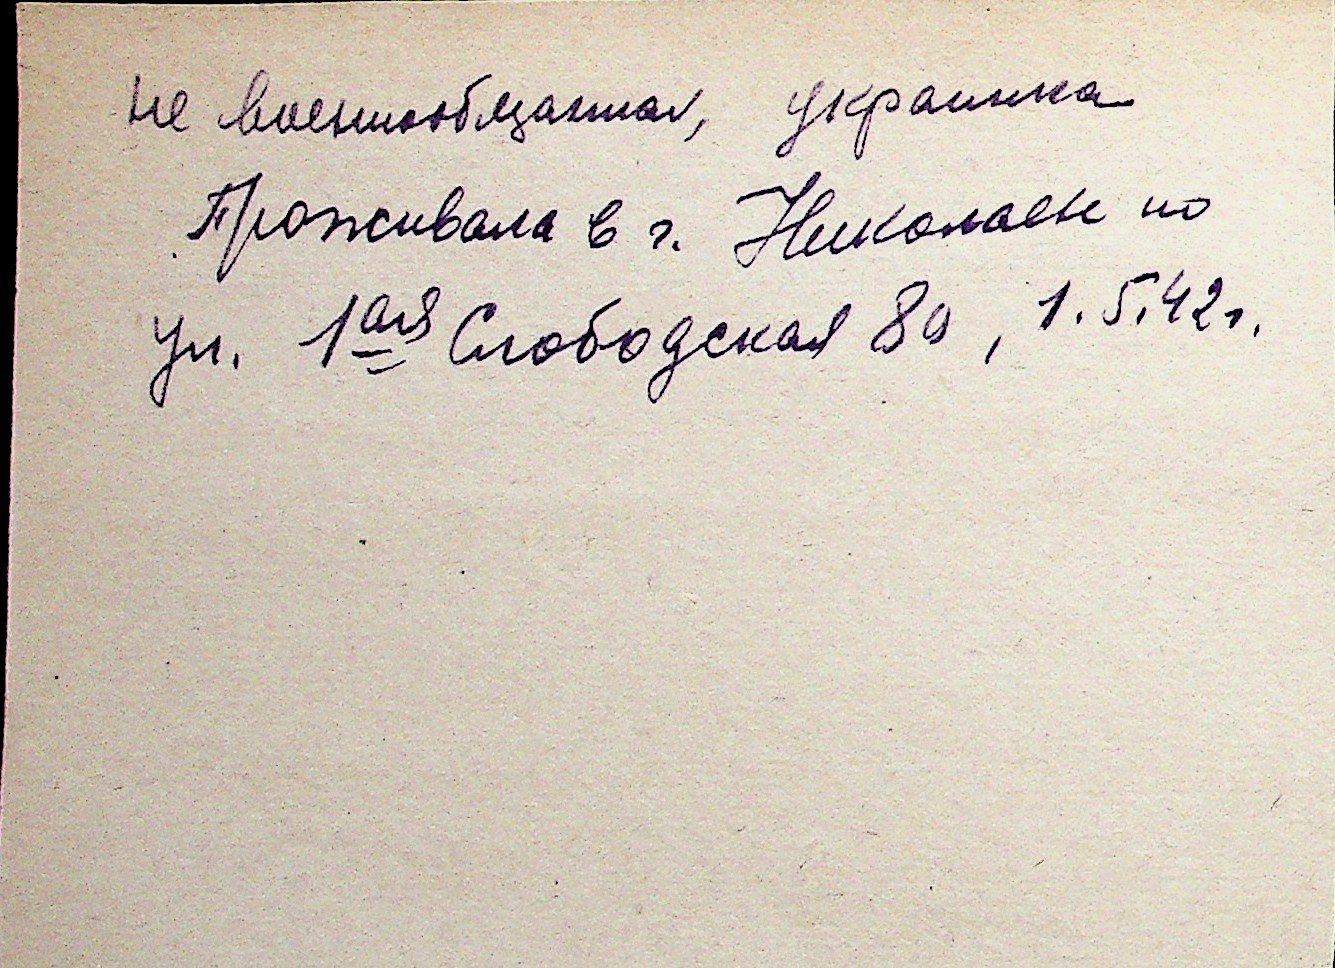 не военнообязанная, украинка
Проживала в г. Николаеве по
ул. 1ая Слободская 80, 1.5.42г.